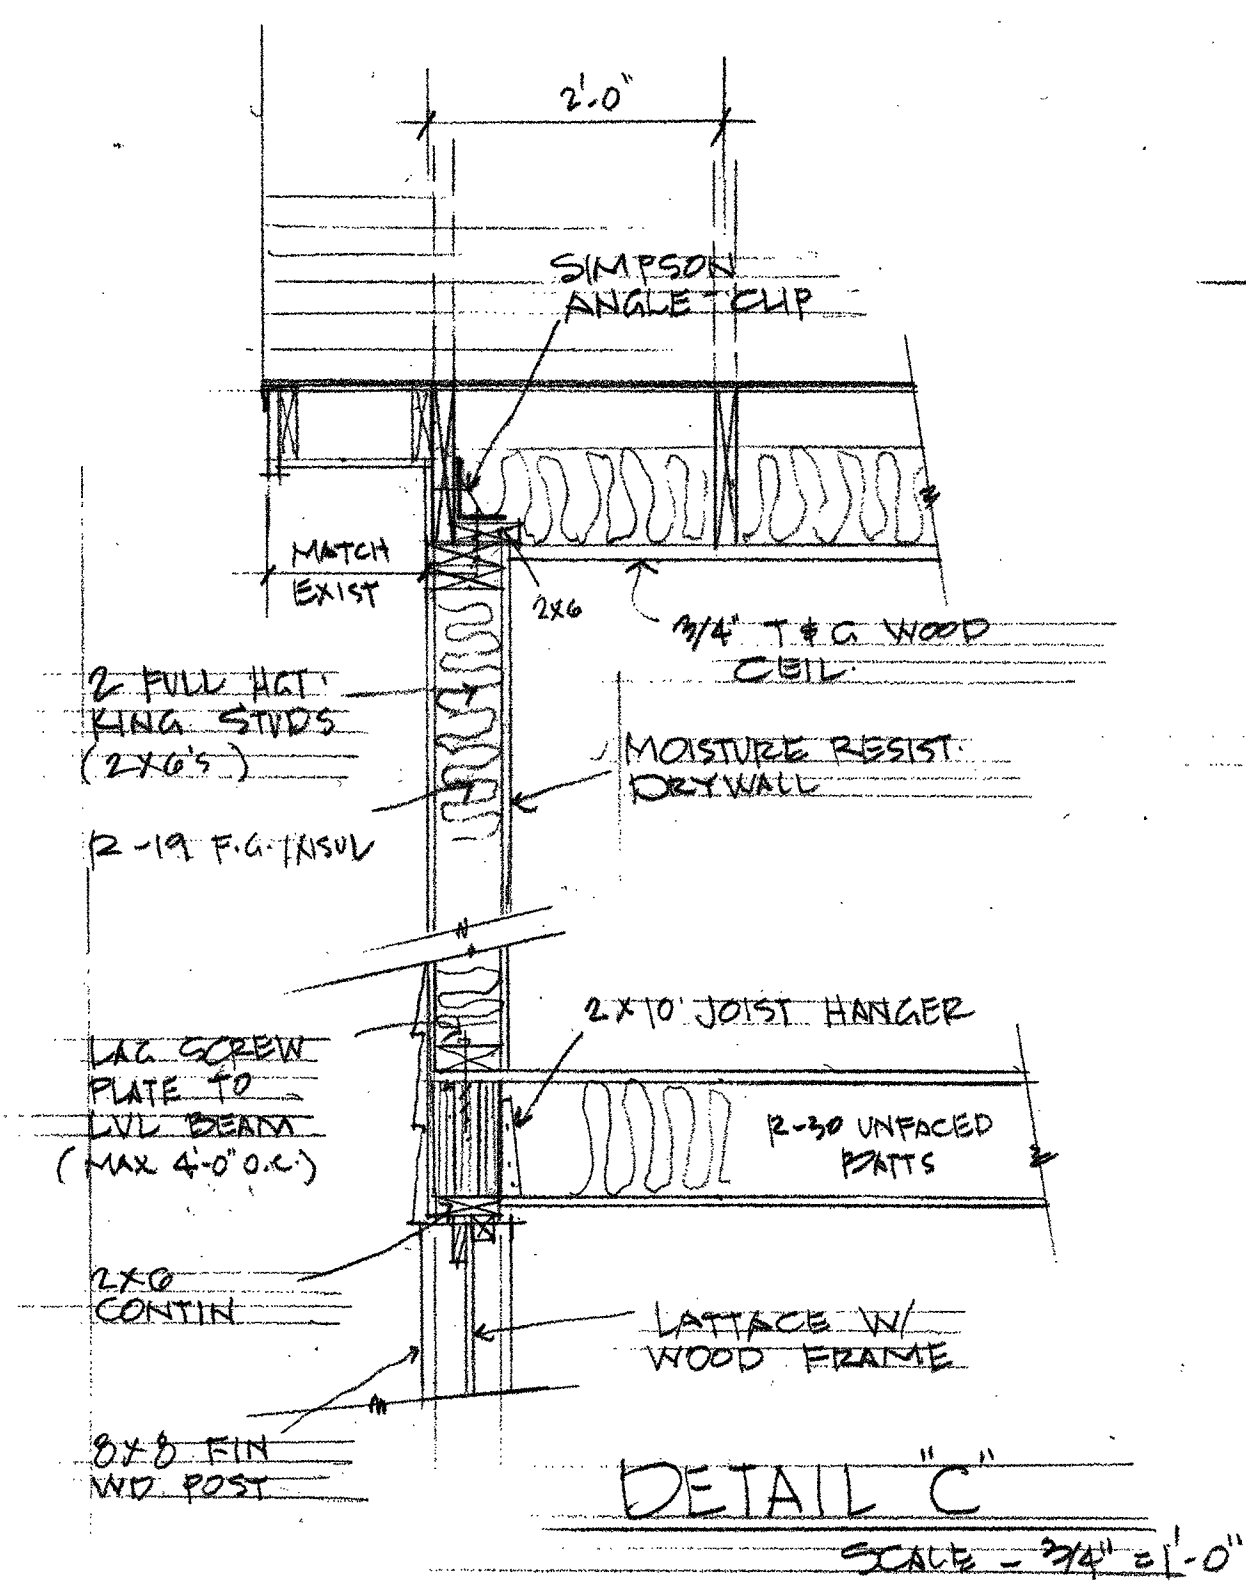 2'-0"
SIMPSON
ANGLE-CLIP
MATCH
EXIST
2X6
3/4" T & G WOOD
CEIL.
2 FULL HGT.
KING STUDS
(2X6'S)
MOISTURE RESIST.
DRYWALL
R-19 F.G. INSUL
2X10 JOIST HANGER
LAG SCREW
PLATE TO
LVL BEAM
(MAX 4'-0" O.C.)
R-30 UNFACED
BATTS
2X6
CONTIN
LATTACE W/
WOOD FRAME
8X8 FIN
WD POST
DETAIL "C"
SCALE - 3/4" = 1'-0"